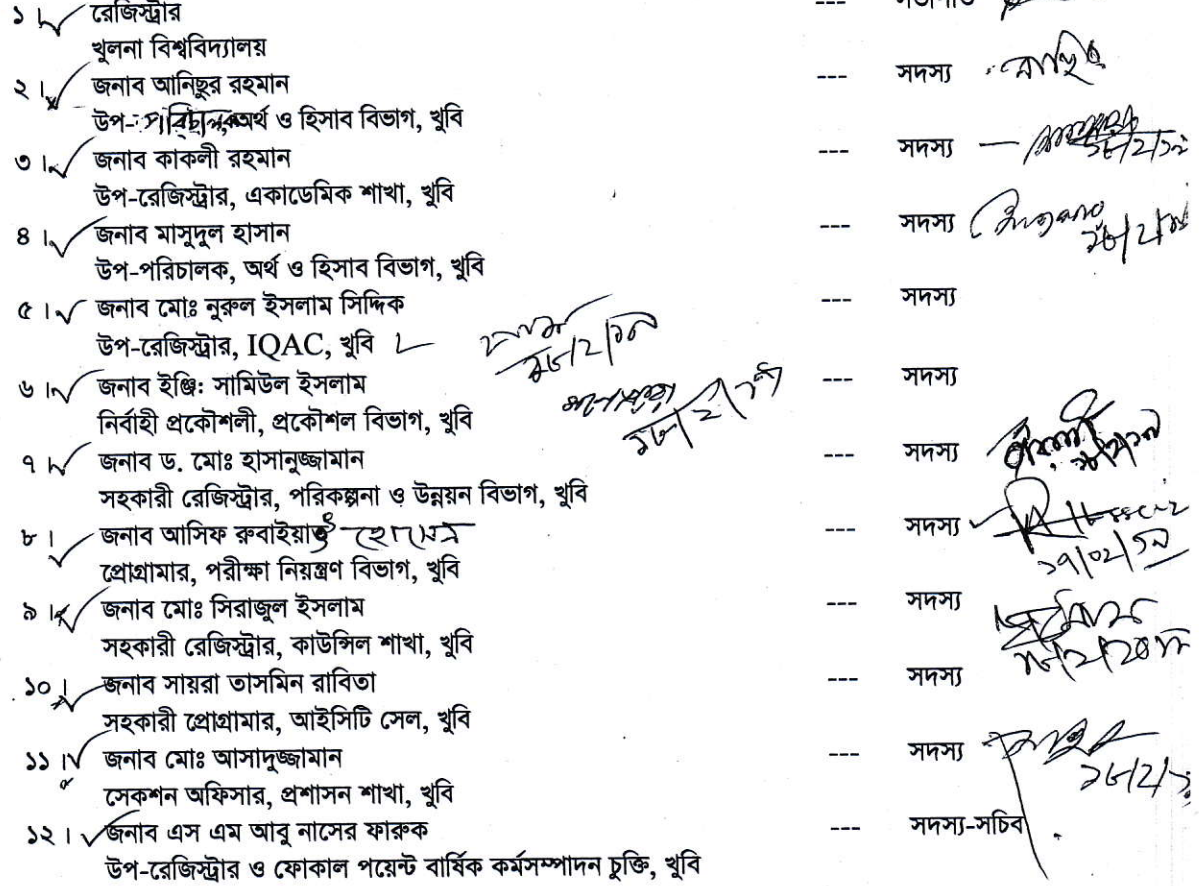 ১। রেজিস্ট্রার --- সভাপতি
খুলনা বিশ্ববিদ্যালয়
২। জনাব আনিছুর রহমান --- সদস্য
উপ-পরিচালক অর্থ ও হিসাব বিভাগ, খুবি
৩। জনাব কাকলী রহমান --- সদস্য
উপ-রেজিস্ট্রার, একাডেমিক শাখা, খুবি
৪। জনাব মাসুদুল হাসান --- সদস্য
উপ-পরিচালক, অর্থ ও হিসাব বিভাগ, খুবি
৫। জনাব মোঃ নুরুল ইসলাম সিদ্দিক --- সদস্য
উপ-রেজিস্ট্রার, IQAC, খুবি
৬। জনাব ইঞ্জি: সামিউল ইসলাম --- সদস্য
নির্বাহী প্রকৌশলী, প্রকৌশল বিভাগ, খুবি
৭। জনাব ড. মোঃ হাসানুজ্জামান --- সদস্য
সহকারী রেজিস্ট্রার, পরিকল্পনা ও উন্নয়ন বিভাগ, খুবি
৮। জনাব আসিফ রুবাইয়াৎ হোসেন --- সদস্য
১৭/০২/১৯
প্রোগ্রামার, পরীক্ষা নিয়ন্ত্রণ বিভাগ, খুবি
৯। জনাব মোঃ সিরাজুল ইসলাম --- সদস্য
সহকারী রেজিস্ট্রার, কাউন্সিল শাখা, খুবি
১০। জনাব সায়রা তাসমিন রাবিতা --- সদস্য
সহকারী প্রোগ্রামার, আইসিটি সেল, খুবি
১১। জনাব মোঃ আসাদুজ্জামান --- সদস্য
সেকশন অফিসার, প্রশাসন শাখা, খুবি
১২। জনাব এস এম আবু নাসের ফারুক --- সদস্য-সচিব
উপ-রেজিস্ট্রার ও ফোকাল পয়েন্ট বার্ষিক কর্মসম্পাদন চুক্তি, খুবি